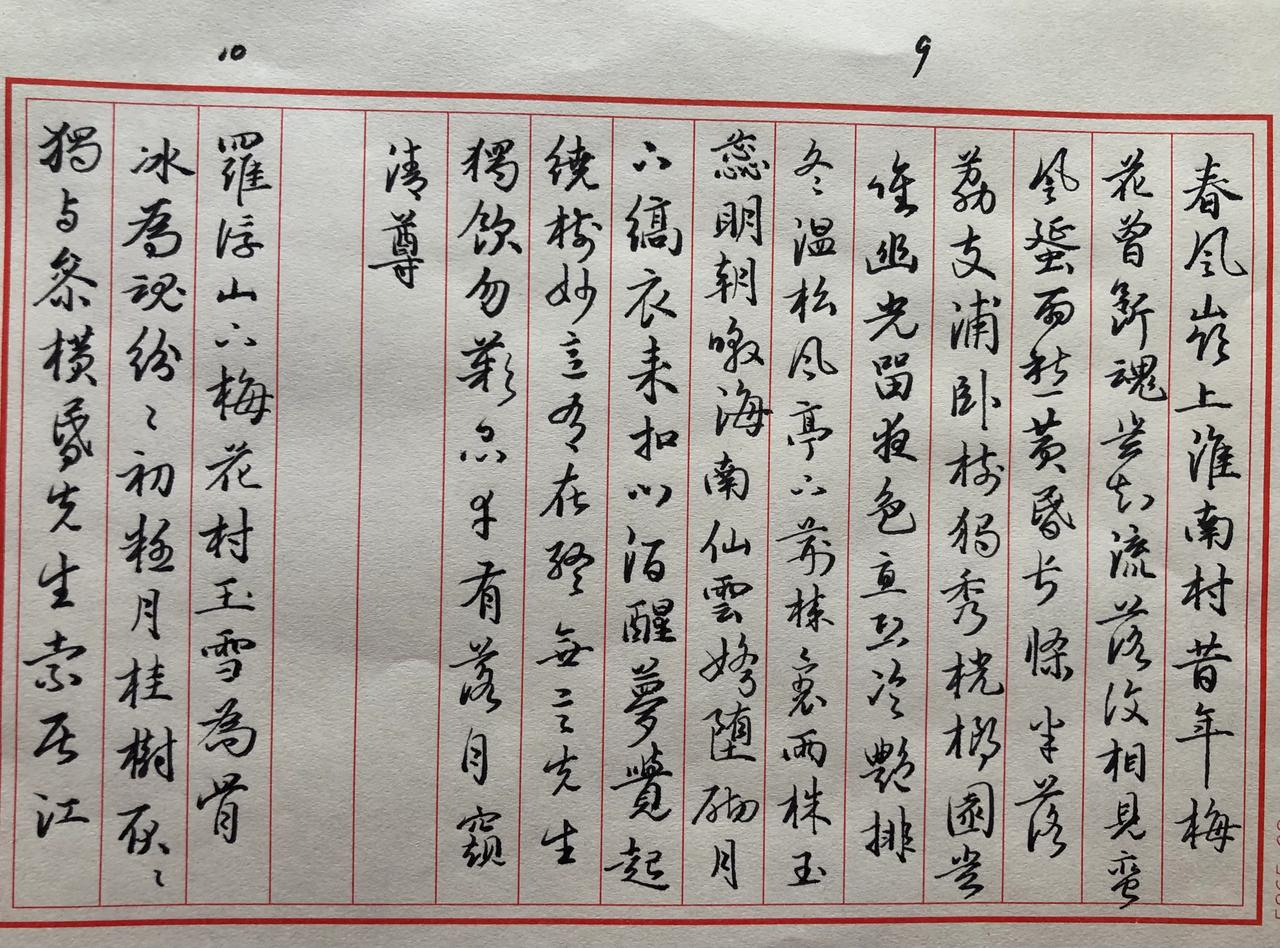 9
春風嶺上淮南村昔年梅
花曾斷魂豈知流落復相見蠻
風蜑雨愁黃昏長條半落
荔支浦臥樹獨秀桄榔園豈
惟幽光留夜色直恐冷艷排
冬溫松風亭下荊棘裏兩株玉
蕊明朝暾海南仙雲嬌墮砌月
下縞衣来扣門酒醒夢覺起
繞樹妙意有在終無言先生
獨飲勿歎息幸有落月窺
清尊
10
羅浮山下梅花村玉雪為骨
冰為魂紛〻初疑月桂樹耿〻
獨与參橫昏先生索居江